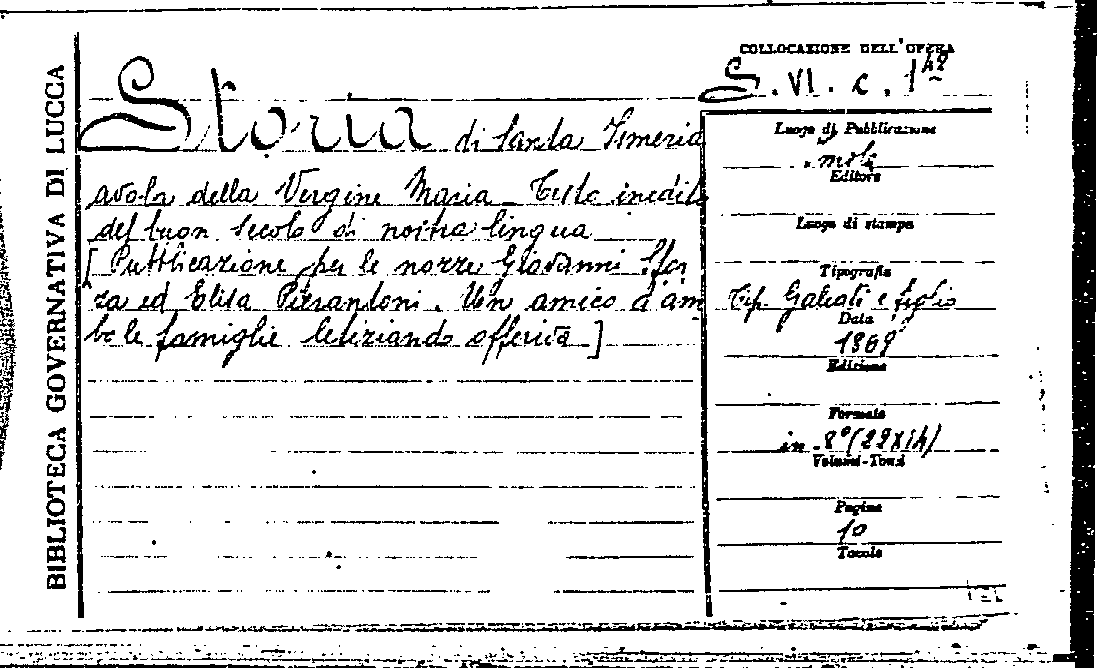 BIBLIOTECA GOVERNATIVA DI LUCCA
Storia di Santa Ismeria
avola della Vergine Maria - Testo inedito
del buon secolo di nostra lingua
[Pubblicazione per le nozze Giovanni Sfor
za ed Elisa Pierantoni. Un amico d'am
be le famiglie letiziando offeriva]
COLLOCAZIONE DELL'OPERA
S. VI. c. 1
Luogo di Pubblicazione
Editore
Luogo di stampa
Tipografia
Tip. Galeati e figlio
Data
1869
Edizione
Formato
in 8°
Volumi-Tomi
Pagine
10
Tavole